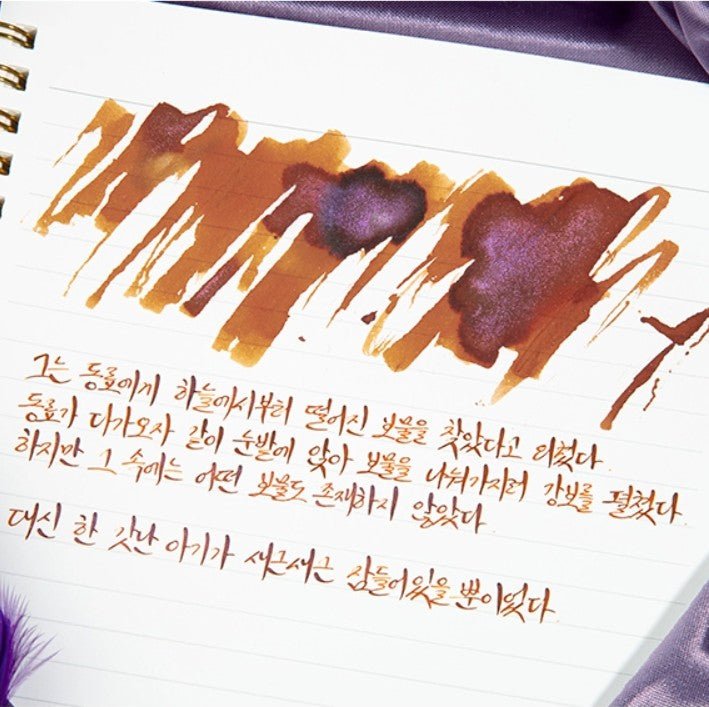 그는 동료에게 하늘에서부터 떨어진 보물을 찾았다고 외쳤다.
동료가 다가오자 같이 눈밭에 앉아 보물을 나눠가지려 강보를 펼쳤다.
하지만 그 속에는 어떤 보물도 존재하지 않았다.
대신 한 갓난 아기가 새근새근 잠들어있을 뿐이었다.